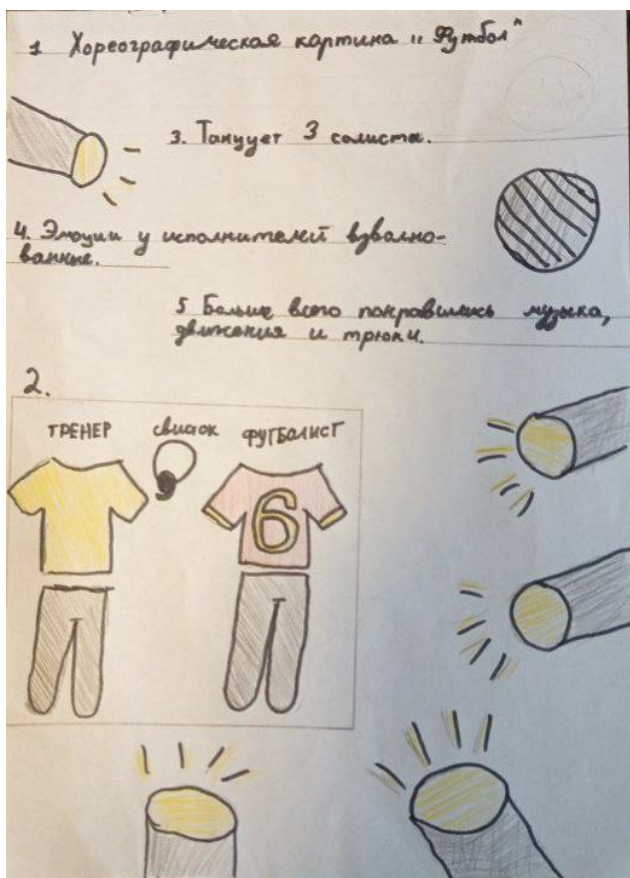 1 Хореографическая картина „Футбол"
3. Танцует 3 солиста.
4. Эмоции у исполнителей взволно-
ванные.
5 Больше всего понравились музыка,
движения и трюки.
2.
ТРЕНЕР свисток ФУТБОЛИСТ
6